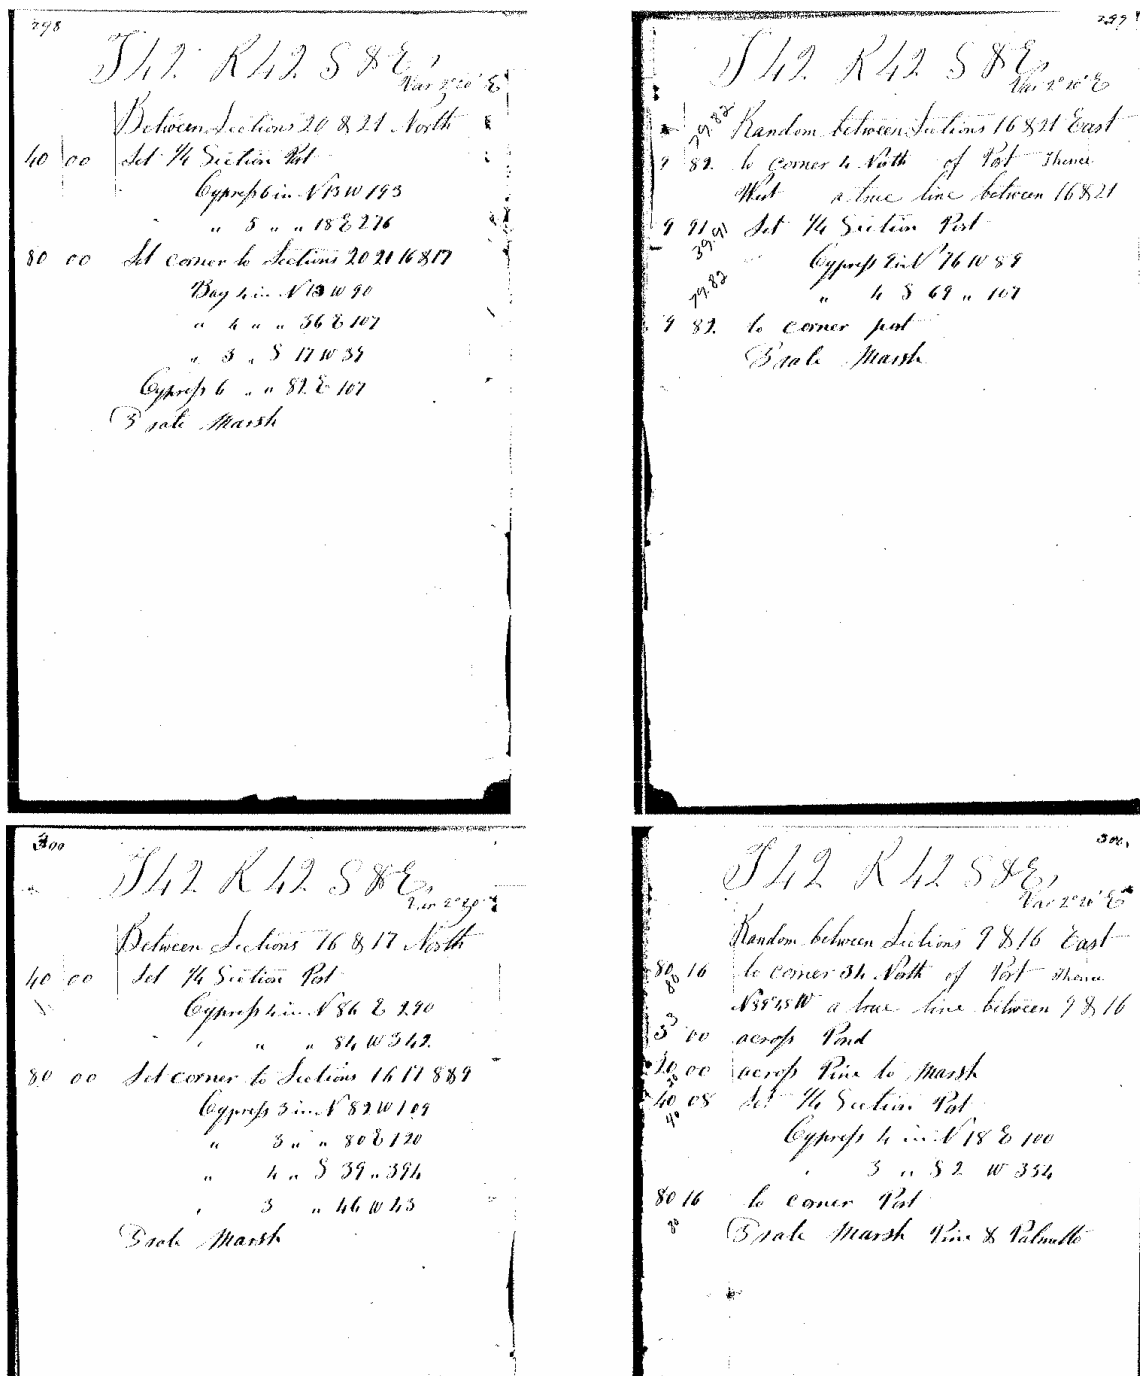 298
T 42 R 42 S & E,
Var 2° 20' E
Between Sections 20 & 21 North
40 00 Set 1/4 Section Post
Cypress 6 in N 13 W 193
" 5 " " 18 E 276
80 00 Set corner to Sections 20 21 16 & 17
Bay 4 in N 13 W 90
" 4 " " 36 E 107
" 3 " S 17 W 39
Cypress 6 " " 82 E 107
3 rate Marsh
299
T 42 R 42 S & E,
Var 2° 20' E
79.82 Random between Sections 16 & 21 East
9 82 to corner 4 North of Post Thence
West a true line between 16 & 21
9 91 39.91 Set 1/4 Section Post
Cypress 2 in N 76 W 89
" 4 S 69 " 107
79.82
9 82 to corner post
3 rate Marsh
300
T 42 R 42 S & E,
Var 2° 20'
Between Sections 16 & 17 North
40 00 Set 1/4 Section Post
Cypress 4 in N 86 E 290
" " 84 W 342
80 00 Set corner to Sections 16 17 8 & 9
Cypress 3 in N 82 W 109
" 3 " " 80 E 120
" 4 " S 39 " 394
" 3 " 46 W 43
3 rate Marsh
T 42 R 42 S & E,
Var 2° 20' E
Random between Sections 9 & 16 East
80 16 to corner 34 North of Post Thence
80
N 89° 45 W a true line between 9 & 16
3 00 across Pond
20 00 across Pine to Marsh
20
40 08 Set 1/4 Section Post
40
Cypress 4 in N 18 E 100
" 3 " S 2 W 354
80 16 to corner Post
80
3 rate Marsh Pine & Palmetto